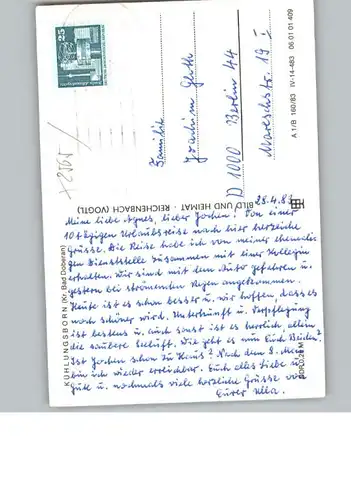 25.4.83
Meine liebe Agnes, lieber Jochen! Von einer
10 tägigen Urlaubsreise nach hier herzliche
Grüsse. Die Reise habe ich von meiner ehemali-
gen Dienststelle zusammen mit einer Kollegin
erhalten. Wir sind mit dem Auto gefahren u.
gestern bei strömenden Regen angekommen.
Heute ist es schon besser u. wir hoffen, dass es
noch schöner wird. Unterkunft u. Verpflegung
ist bestens u. auch sonst ist es herrlich, allein
die saubere Seeluft. Wie geht es nun Euch Beiden?
Ist Jochen schon zu Haus? Nach dem 8. Mai
bin ich wieder erreichbar. Euch alles Liebe u.
Gute u. nochmals viele herzliche Grüsse von
Eurer Ulla.
Familie
Joachim Gloth
D 1000 Berlin 44
Mareschstr. 19 I
25
KÜHLUNGSBORN (Kr. Bad Doberan)
BILD UND HEIMAT · REICHENBACH (VOGTL)
A 1/B 160/83 IV-14-483 06 01 01 409